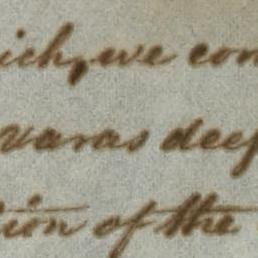 ich, we con
varas deep
tion of the